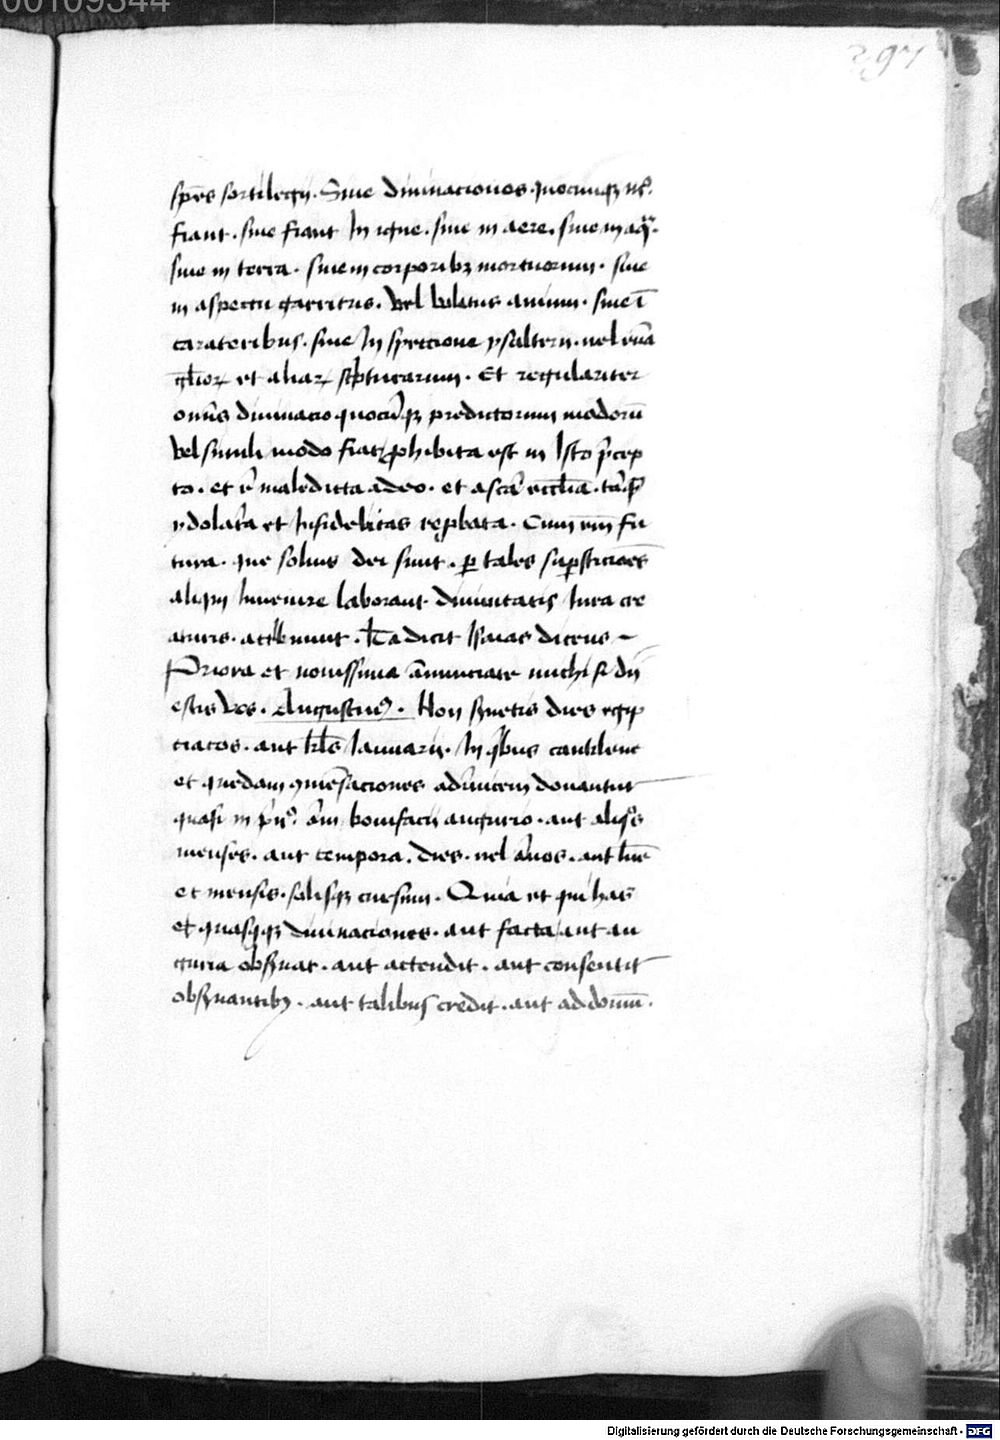 00109344
297
spēs sortilegii. Siue diuinacionos quocumqꝫ
fiant. siue fiant In igne. siue in aere. siue in aq̃.
siue in terra. siue in corporibꝫ mortuorum. siue
in aspectu garritus. Vel volatus auium. siue ī
carateribus. siue In speccione psalterii. uel euā
gl̄ioꝝ et aliaꝝ sc̄pturarum. Et regulariter
omīs diuinacio quocūqꝫ predictorum modorū
Vel simili modo fiat ꝓhibita est in Isto p̄cep
to. et maledicta a deo. et a sc̄a eccl̄ia.
ydolat̄a et Infidelitas reꝓbata. Cum eīm fu
tura. que solius dei sunt. ꝑ tales suꝑsticiōes
aliqui Inuenire laborant diuinitatis Iura cre
aturis. attͥbuunt. dicit Isaias dicens
Priora et nouissima ānunciate michi si dii
estis Vos. Augustinꝰ. Non ẜuetis dies egip
ciacos. aut kl̄s Ianuarii. In qͥbus cantilene
et quedam ꝯmēsaciones adīuicem donantur
quasi in bonifacii augurio. aut aliqͦs
menses. aut tempora. dies. uel ānos. aut lūe
et mensis. solisqꝫ cursum. Quia et qui has
et quasqꝫ diuinaciones. aut facta aut au
guria obẜuat. aut attendit. aut consentit
obẜuantibꝫ. aut talibus credit. aut ad domū.
Digitalisierung gefördert durch die Deutsche Forschungsgemeinschaft - DFG